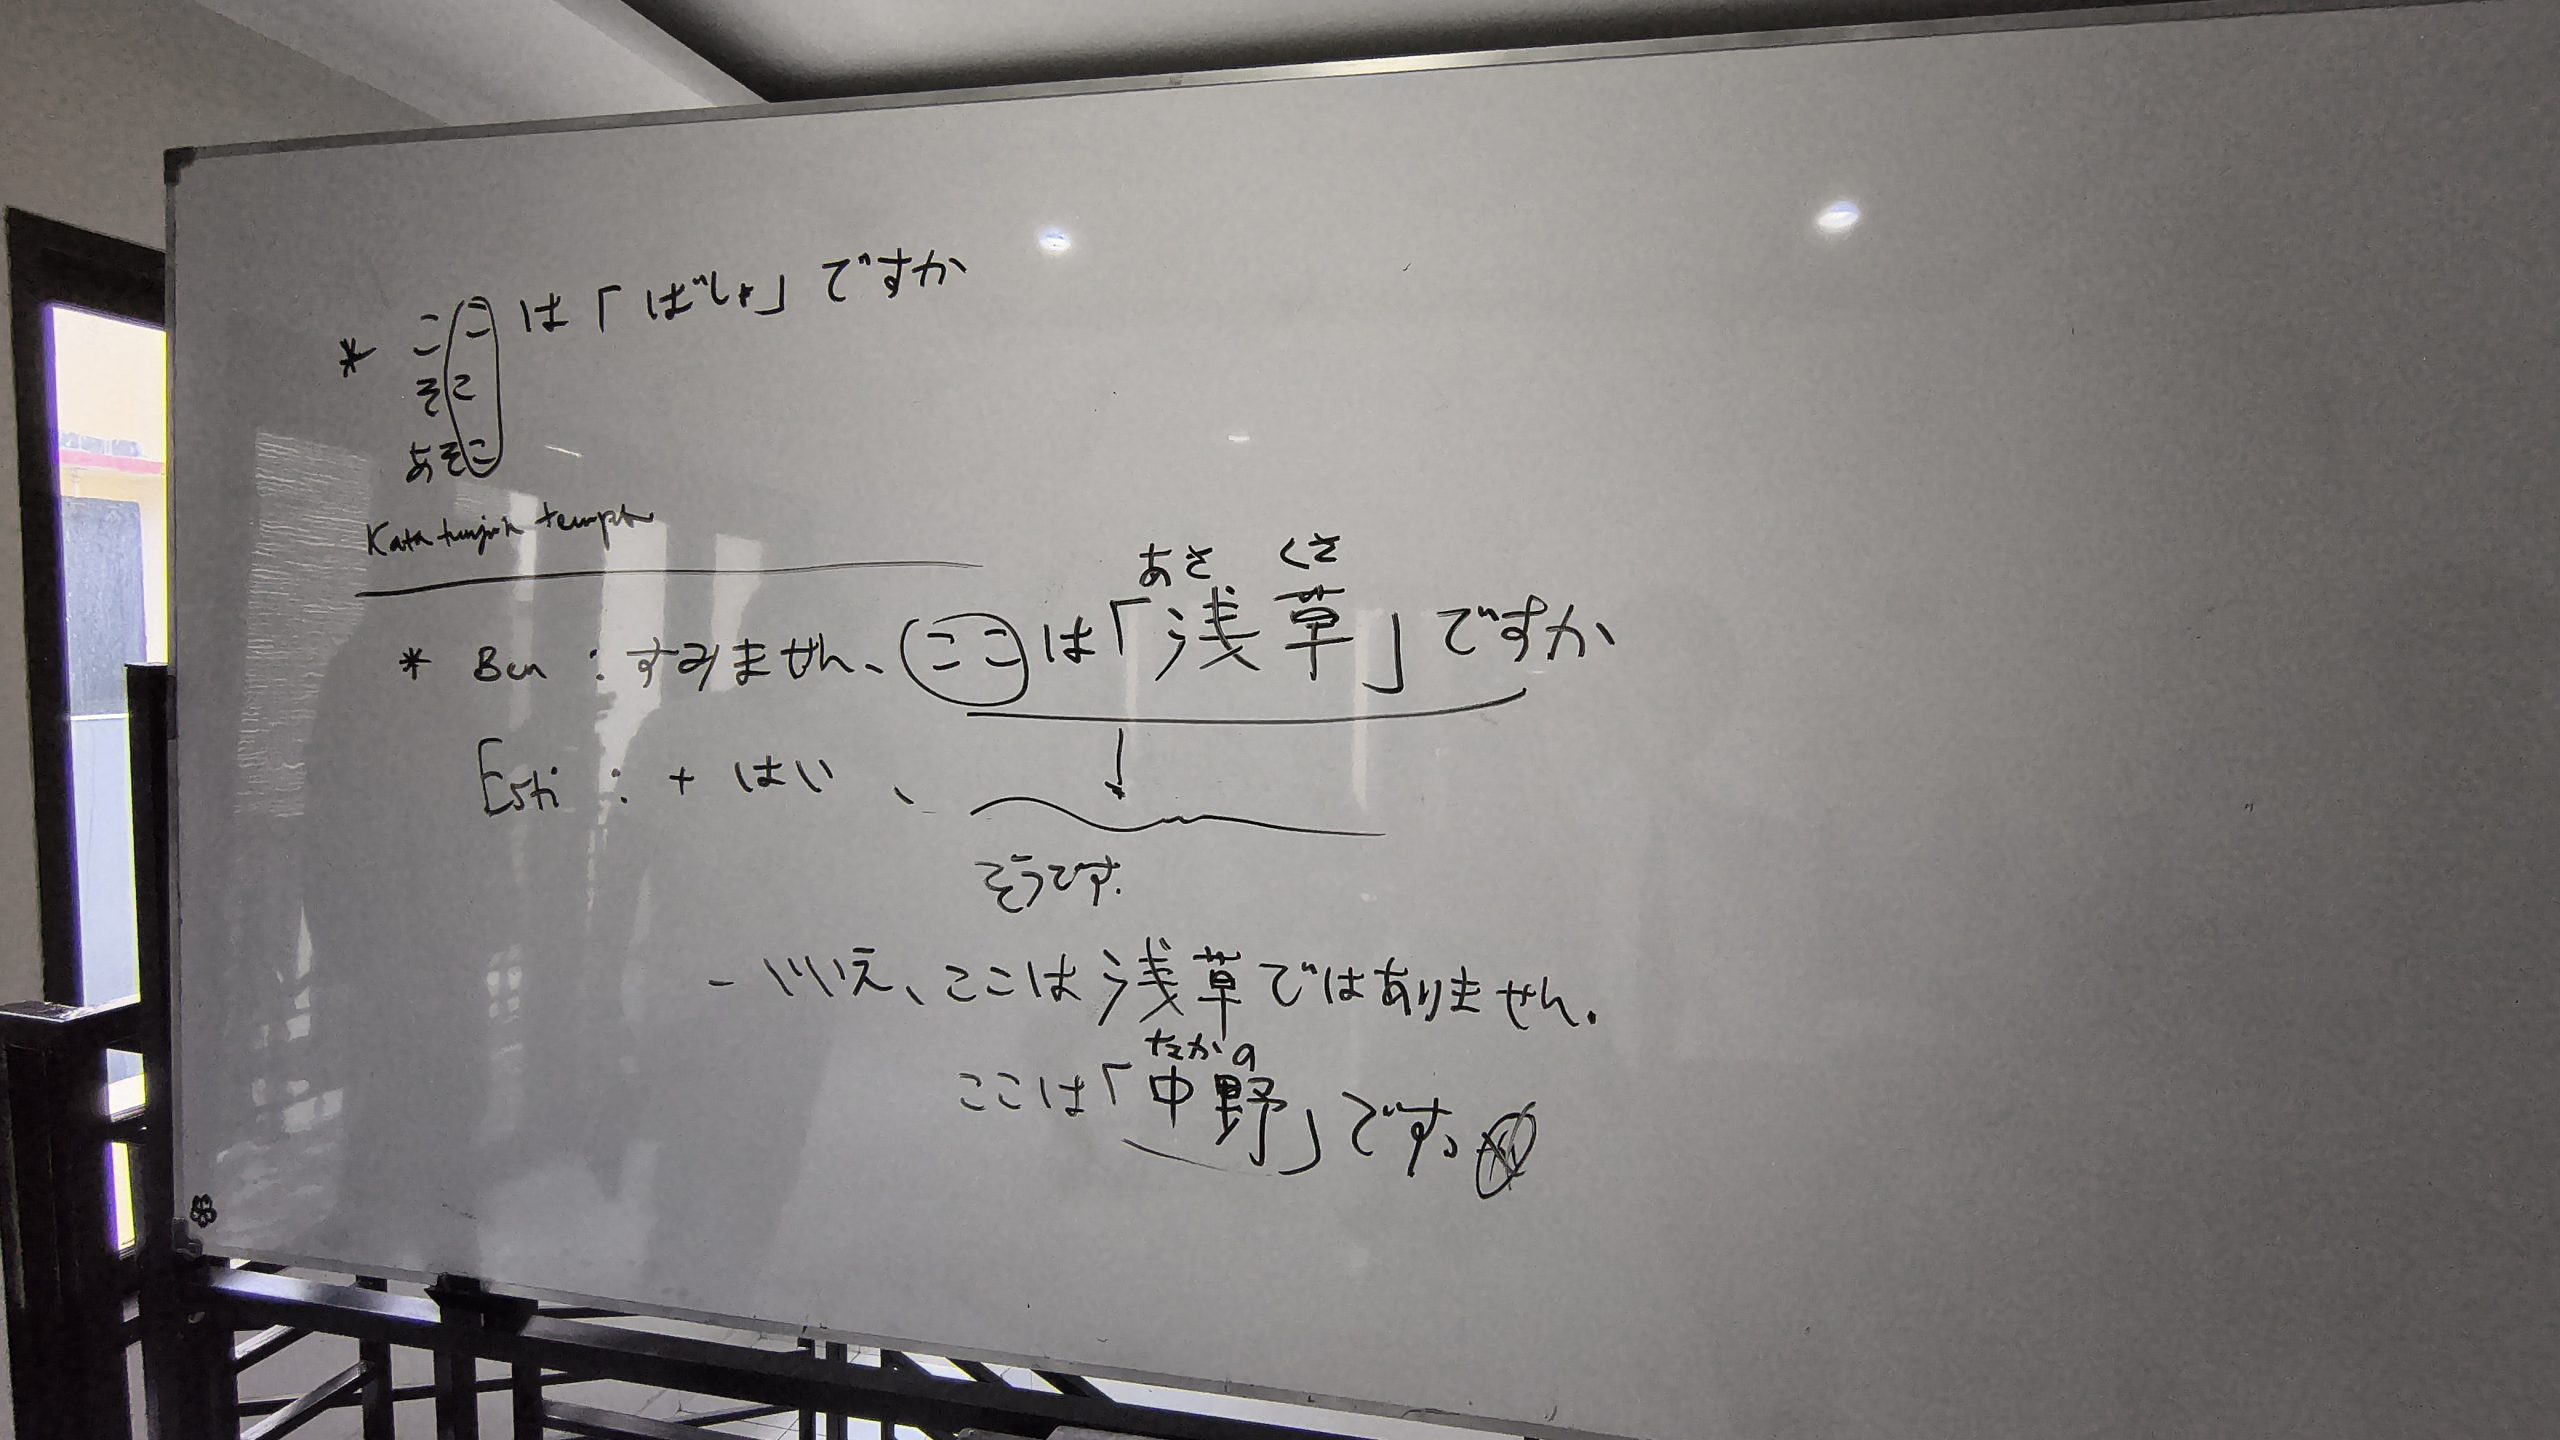 * ここは「ばしょ」ですか
そこ
あそこ
Kata tunjuk tempat
あさ くさ
* Ben : すみません、ここは「浅草」ですか
Esti : + はい、
そうです.
- いいえ、ここは浅草ではありません.
なかの
ここは「中野」です。